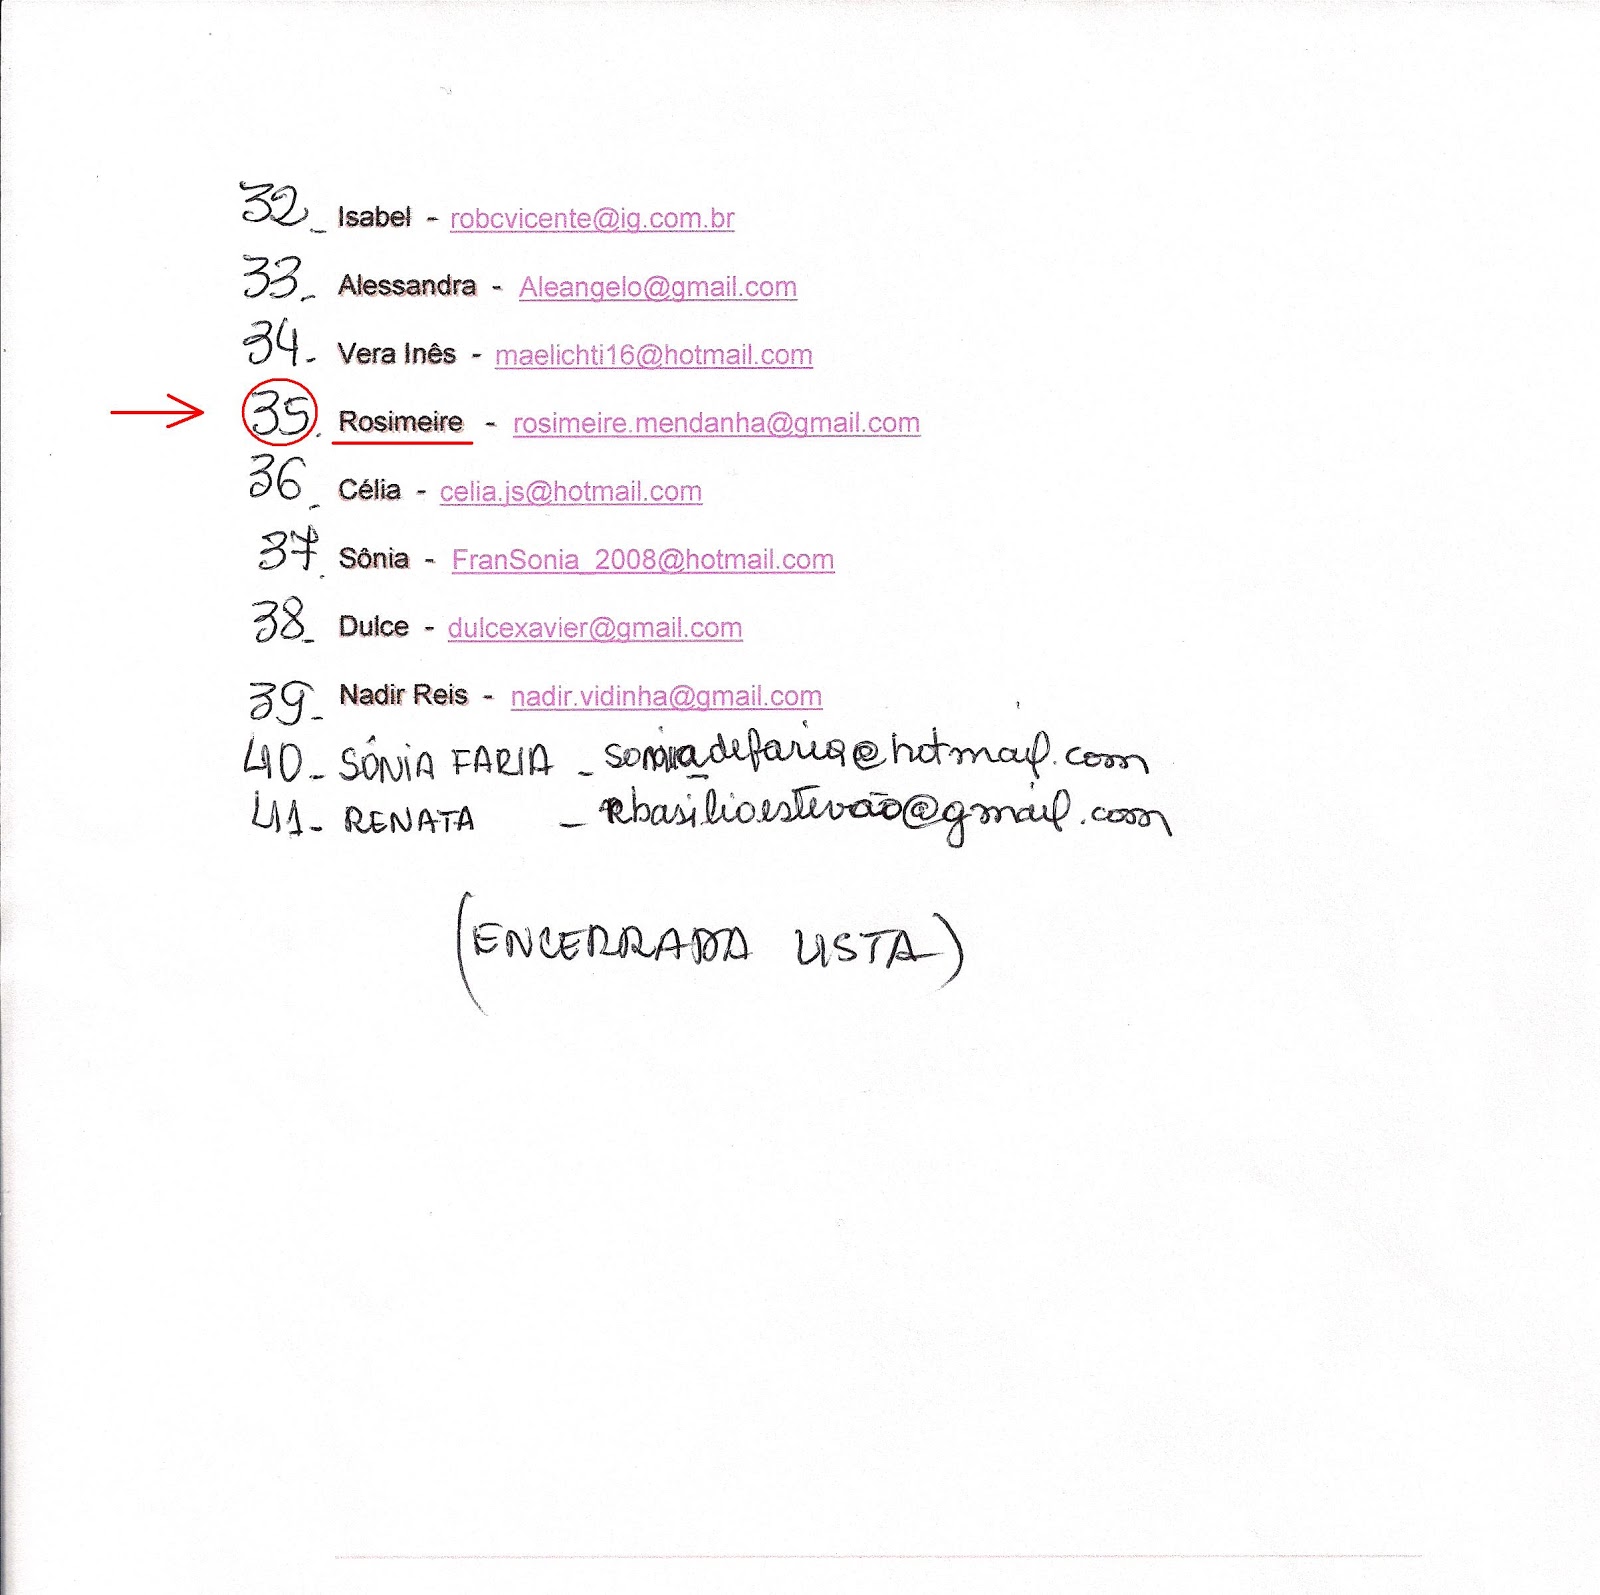 32_ Isabel - robcvicente@ig.com.br
33_ Alessandra - Aleangelo@gmail.com
34- Vera Inês - maelichti16@hotmail.com
35. Rosimeire - rosimeire.mendanha@gmail.com
36_ Célia - celia.js@hotmail.com
37. Sônia - FranSonia_2008@hotmail.com
38_ Dulce - dulcexavier@gmail.com
39_ Nadir Reis - nadir.vidinha@gmail.com
40_ SÔNIA FARIA - sonia_defaria@hotmail.com
41- RENATA - rbasilioestevão@gmail.com
(ENCERRADA LISTA)